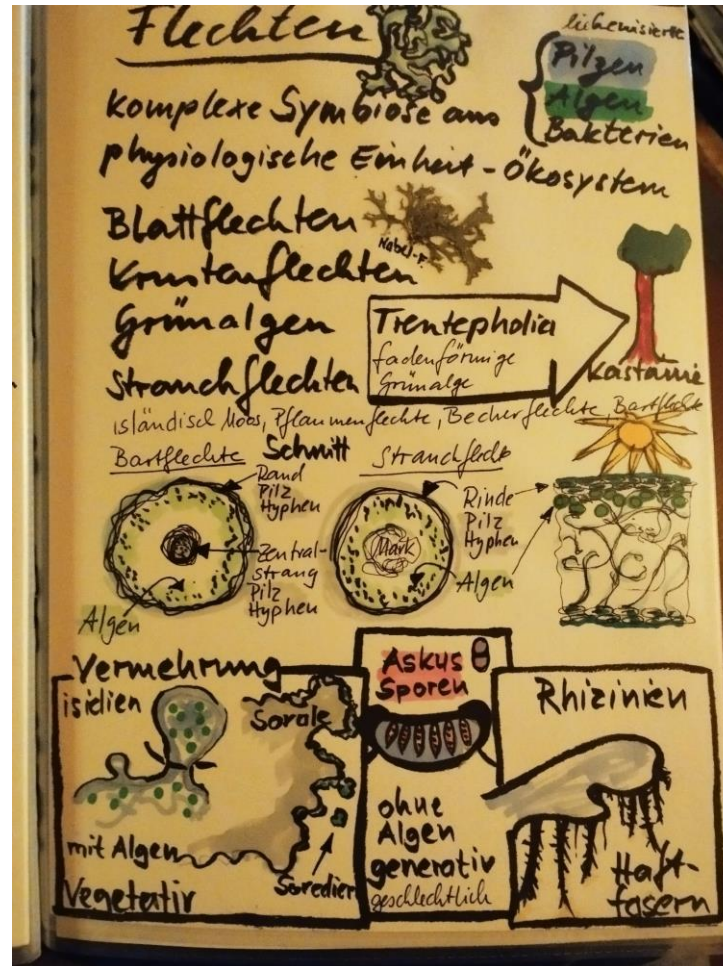 Flechten
lichenisierte
Pilzen
Algen
Bakterien
Komplexe Symbiose aus
physiologische Einheit - Ökosystem
Blattflechten
Nabel-F.
Krustenflechten
Grünalgen
Strauchflechten
Trentepholia
fadenförmige
Grünalge
Kastanie
isländisch Moos, Pflaumenflechte, Becherflechte, Bartflechte
Bartflechte Schnitt Strauchflecht
Rand
Pilz
Hyphen
Zentral-
strang
Pilz
Hyphen
Algen
Mark
Rinde
Pilz
Hyphen
Algen
Vermehrung
isidien
Sorale
mit Algen
Soredien
Vegetativ
Askus
Sporen
ohne
Algen
generativ
geschlechtlich
Rhizinien
Haft-
fasern